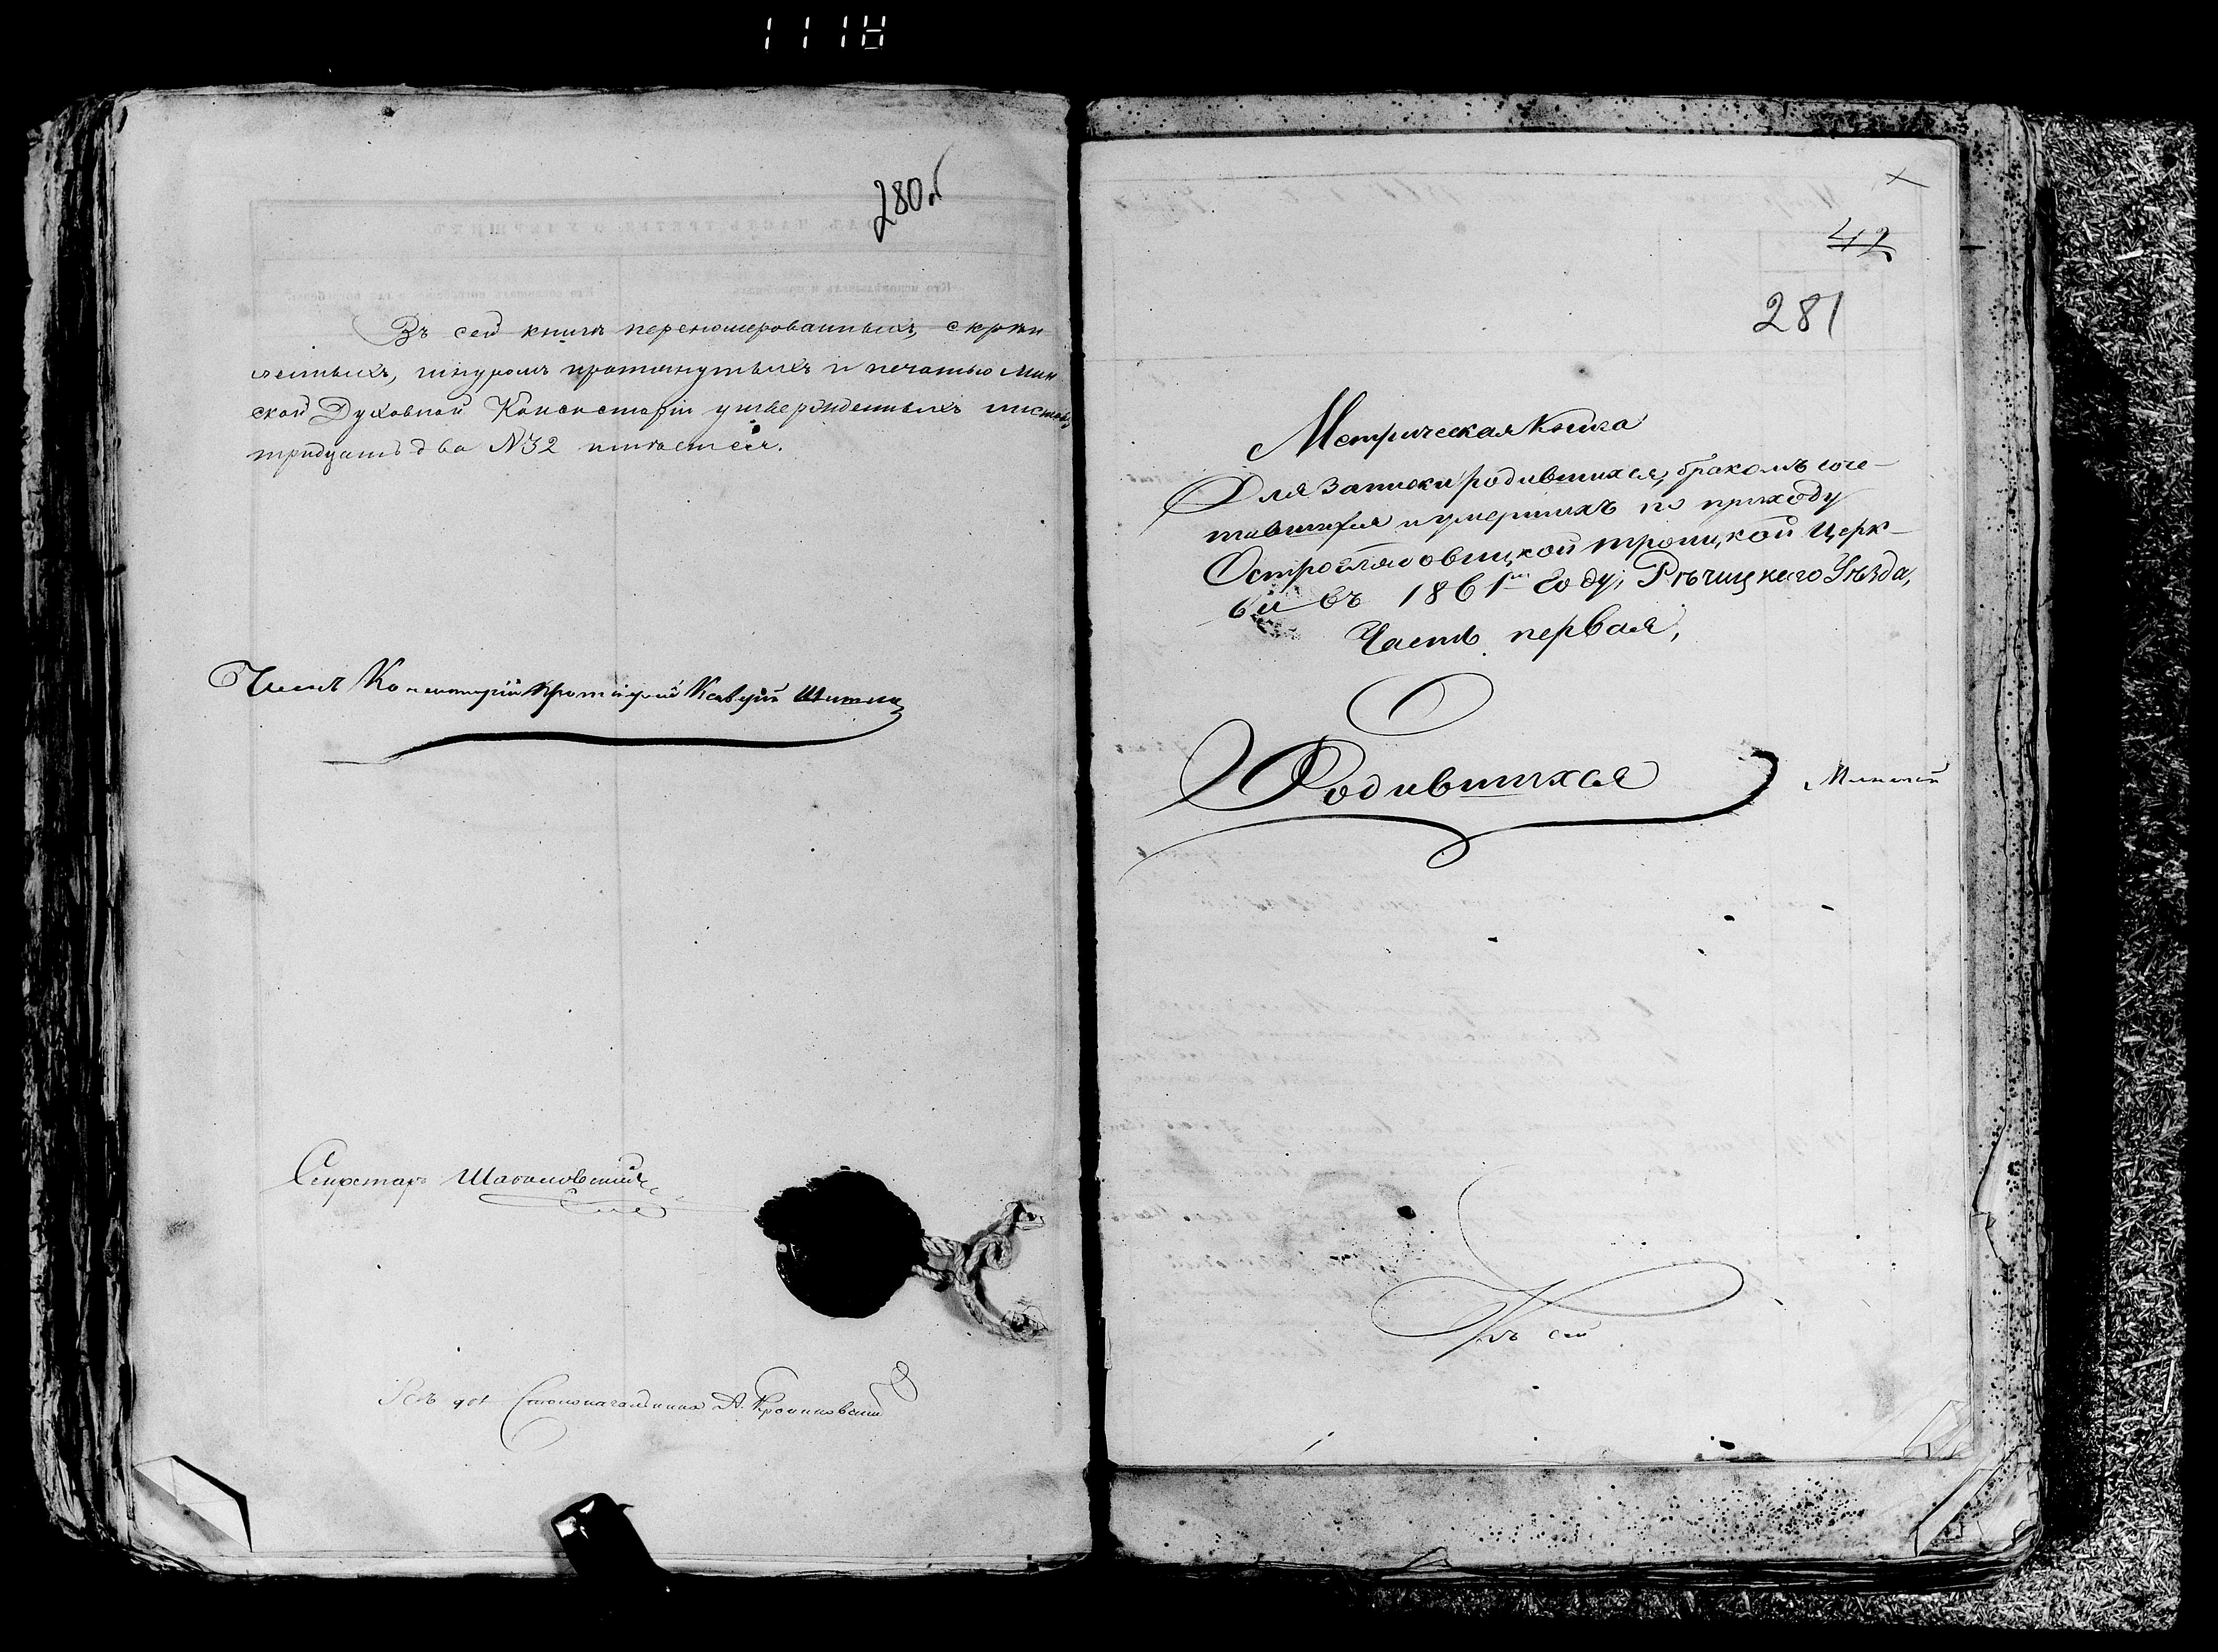 280 об
Въ сей книгѣ перенумерованныхъ, скрѣп
ленныхъ, шнуромъ протянутыхъ и печатью Мин
ской Духовной Консисторіи утвержденныхъ листовъ
тридцать два N32 имѣется.
Членъ Консисторіи Протоіерей
Секретарь
Столоначальника А.
42
281
Метрическая Книга
Для Записки родившихся, бракомъ соче-
тавшихся и умершихъ по приходу
Остроглядовицкой Троицкой Церк-
ви въ 1861м Году, Рѣчицкаго Уѣзда,
Часть первая,
О
Родившихся
Минской
Къ сей